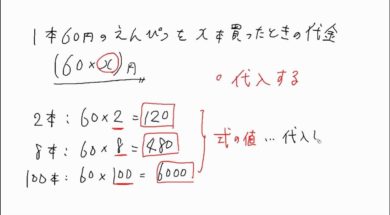 1本60円のえんぴつを x本買ったときの代金
(60×x)円
・代入する
2本：60×2＝120
8本：60×8＝480
100本：60×100＝6000
式の値…代入し